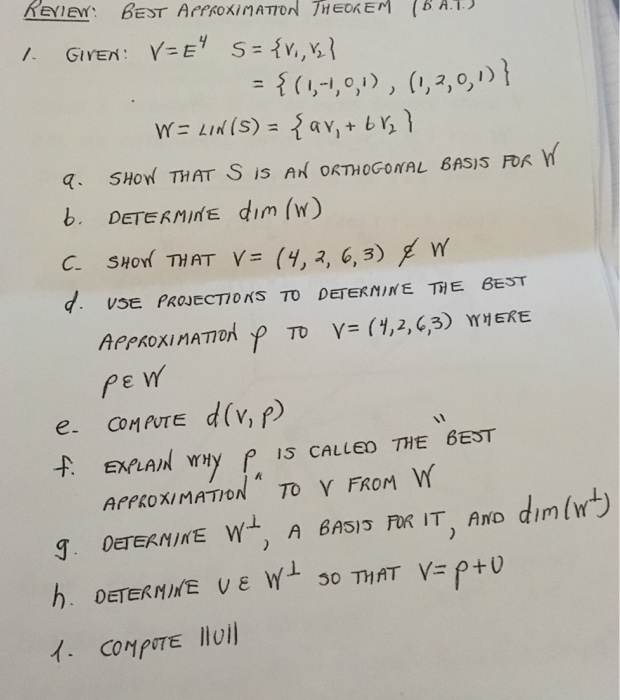 REVIEW: BEST APPROXIMATION THEOREM (B.A.T.)
1. GIVEN: V=E⁴ S = {V₁, V₂}
= {(1,-1,0,1), (1,2,0,1)}
W = LIN(S) = {aV₁ + bV₂}
a. SHOW THAT S IS AN ORTHOGONAL BASIS FOR W
b. DETERMINE dim(W)
C. SHOW THAT V = (4,2,6,3) ∉ W
d. USE PROJECTIONS TO DETERMINE THE BEST
APPROXIMATION p TO V=(4,2,6,3) WHERE
p ε W
e. COMPUTE d(V,p)
f. EXPLAIN WHY p IS CALLED THE "BEST
APPROXIMATION" TO V FROM W
g. DETERMINE W⊥, A BASIS FOR IT, AND dim(W⊥)
h. DETERMINE U ε W⊥ SO THAT V=p+U
1. COMPUTE ||U||